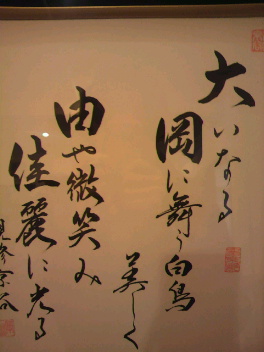 大いなる
岡に舞う白鳥
美しく
由や微笑み
佳麗に光る